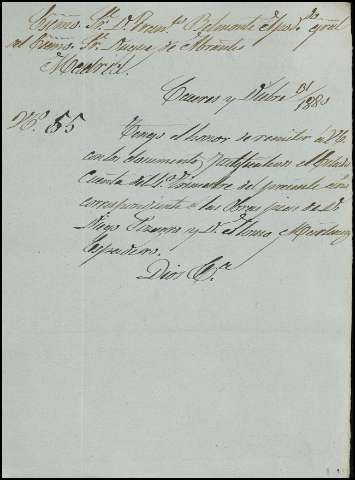 Exmo. Sr. D. Franco. Belmonte Apodo. gral
del Exmo. Sr. Duque de Abrantes
Madrid.
Cáceres y Dbre 31/188
No. 55
Tengo el honor de remitir á V.E.
con los documentos justificativos el Estado
Cuenta del 4o. Trimestre del presente año
correspondiente a las Obras pias de D.
Diego Pizarro y D. Alonso Martinez
Espadero.
Dios &.a